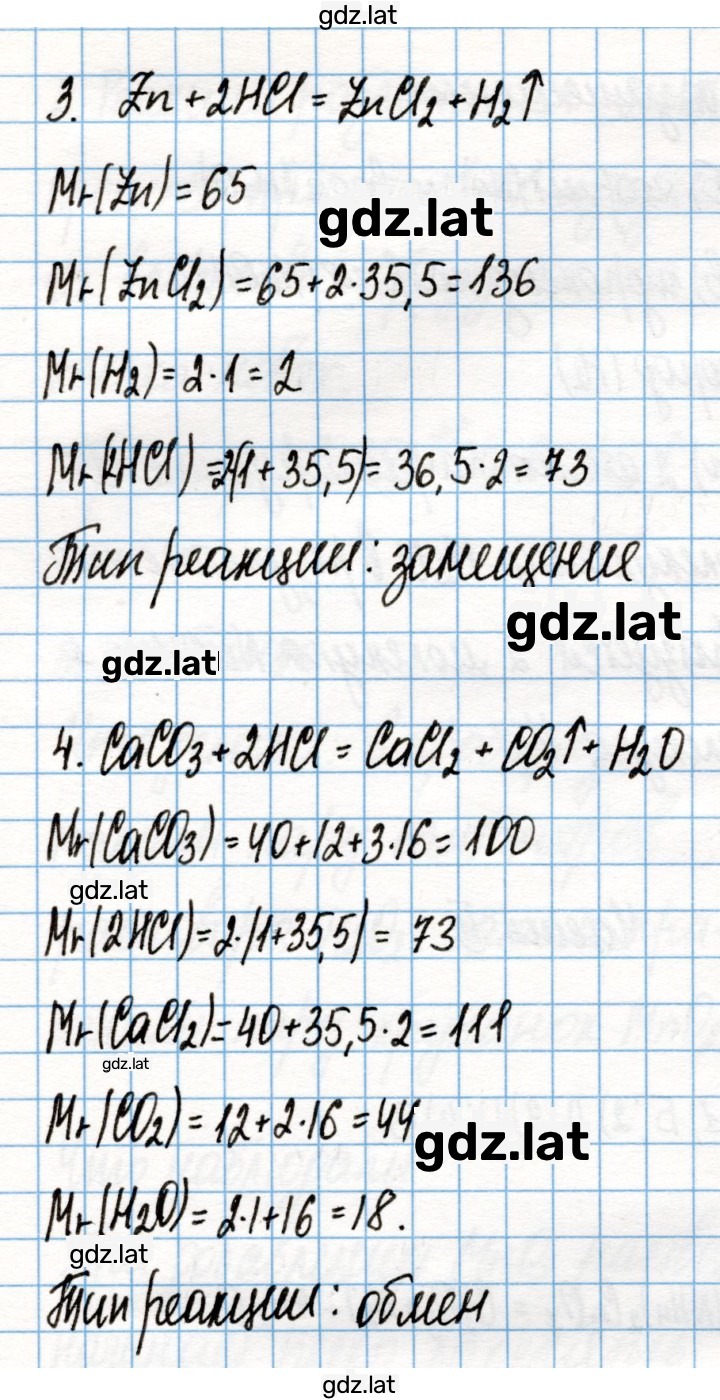 gdz.lat
3. Zn + 2HCl = ZnCl₂ + H₂↑
Mr(Zn) = 65
gdz.lat
Mr(ZnCl₂) = 65 + 2·35,5 = 136
Mr(H₂) = 2·1 = 2
Mr(2HCl) = 2(1 + 35,5) = 36,5·2 = 73
Тип реакции: замещение
gdz.lat
gdz.lat
4. CaCO₃ + 2HCl = CaCl₂ + CO₂↑ + H₂O
Mr(CaCO₃) = 40 + 12 + 3·16 = 100
gdz.lat
Mr(2HCl) = 2·(1 + 35,5) = 73
Mr(CaCl₂) = 40 + 35,5·2 = 111
gdz.lat
Mr(CO₂) = 12 + 2·16 = 44
gdz.lat
Mr(H₂O) = 2·1 + 16 = 18.
gdz.lat
Тип реакции: обмен
gdz.lat